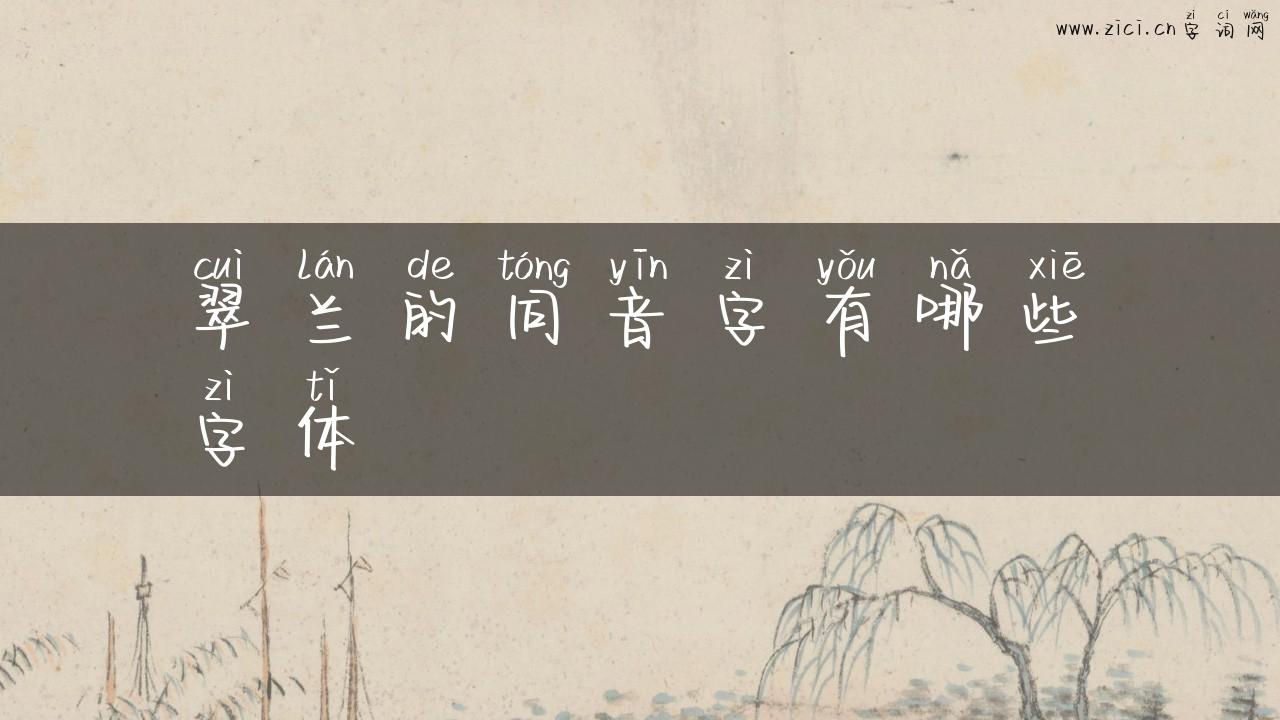 zì cí wǎng
www.zici.cn 字词网
cuì lán de tóng yīn zì yǒu nǎ xiē
翠兰的同音字有哪些
zì tǐ
字体